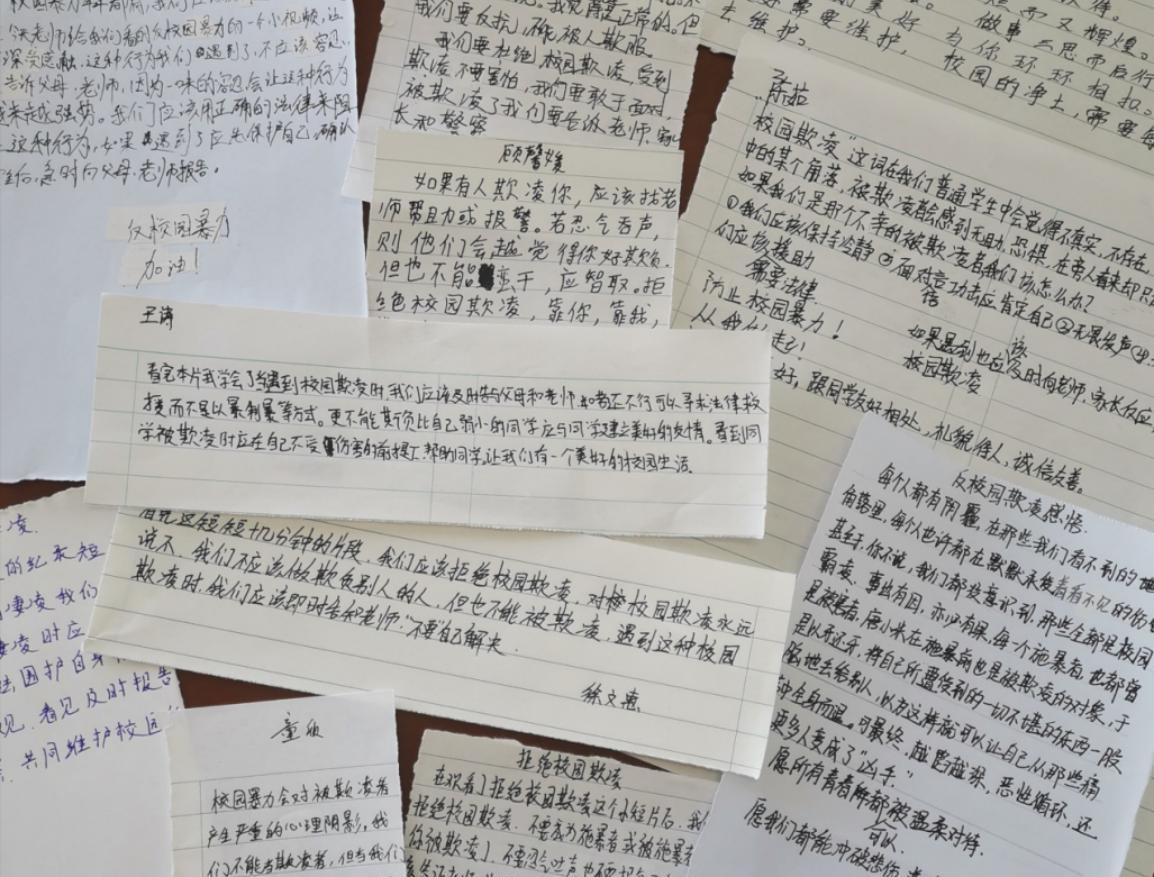 洪老师给我们看的反校园暴力的一个小视频,让
深受感触,这种行为我们遇到了,不应该容忍.
告诉父母.老师,因为一味的容忍会让这种行为
越来越强势。我们应该用正确的法律来阻
这种行为,如果遇到了应先保护自己,确认
全后,急时向父母.老师报告。
反校园暴力
加油!
我们要反抗,不能被人欺服
我们要杜绝校园欺凌,受到
欺凌不要害怕,我们要敢于面对,
被欺凌了我们要告诉老师、家
长和警察
顾馨媛
如果有人欺凌你,应该找老
师帮且力或报警。若忍气吞声,
则他们会越觉得你好欺负.
但也不能蛮干,应智取。拒
绝校园欺凌,靠你,靠我,
需要维护,
做事三思而后行
为你环环相扣。
校园的净土,需要每
陈茹
校园欺凌”这词在我们普通学生中会觉得不真实,不存在,
中的某个角落,被欺凌者会感到无助、恐惧,在旁人看来却只
如果我们是那个不幸的被欺凌者我们该怎么办?
①我们应该保持冷静②面对言功击应肯定自己③无畏发声④
们应该援助
需要法律
防止校园暴力!
从我们走起!
如果遇到也应该及时向老师,家长反应,
校园欺凌
好,跟同学友好相处,礼貌待人,诚信友善。
王涛
看完本片我学会了当遇到校园欺凌时,我们应该及时告与父母和老师,如若还不行可以寻求法律救
援而不是以暴制暴等方式。更不能欺负比自己弱小的同学应与同学建立美好的友情。看到同
学被欺凌时应在自己不受伤害的前提下帮助同学,让我们有一个美好的校园生活。
看完这短短十几分钟的片段,我们应该拒绝校园欺凌,对校园欺凌永远
说不,我们不应该做欺负别人的人,但也不能被欺凌,遇到这种校园
欺凌时,我们应该即时告知老师,“不要”自己解决.
徐文惠
凌.
的纪录短
凌我们
凌时应
护自
见,看见及时报告
共同维护校园
校园暴力会对被欺凌者
产生严重的心理阴影,我
们不能当欺凌者,但当我们
拒绝校园欺凌
在观看了拒绝校园欺凌这个短片后,我
拒绝校园欺凌.不要成为施暴者或被施暴者
你被欺凌了.不要忍气吐声
反校园欺凌感悟.
每个人都有阴霾,在那些我们看不到的地
角落里,每个人也许都在默默承受着看不见的伤
甚至于,你不说,我们都没意识到,那些全都是校园
霸凌,事出有因,亦必有果,每个施暴者,也都曾
是被害者,唐小米在施暴前也是被欺凌的对象,于
是以牙还牙,将自己所遭受到的一切不堪的东西一股
脑地丢给别人,以为这样就可以让自己从那些痛
中全身而退。可最终,越陷越深,恶性循环,还
更多人变成了“凶手”
愿所有青春年都被温柔对待.
愿我们都能可以冲破悲伤,